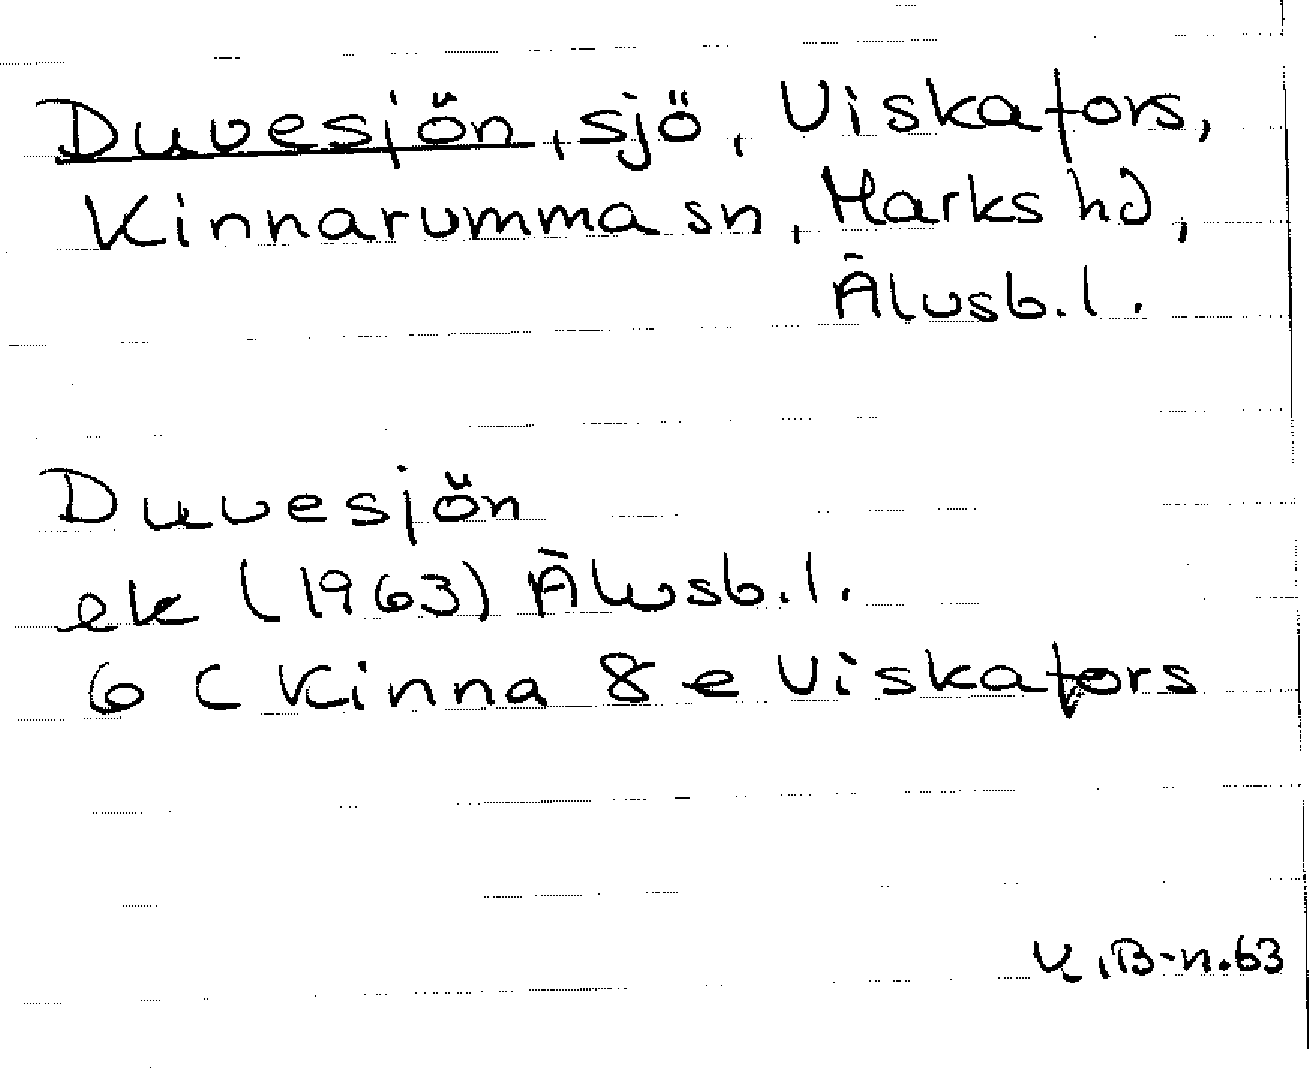 Duvesjön, sjö, Viskafors,
Kinnarumma sn, Marks hd,
Älvsb.l.
Duvesjön
ek (1963) Älvsb.l.
6 C Kinna 8 e Viskafors
B-n.63